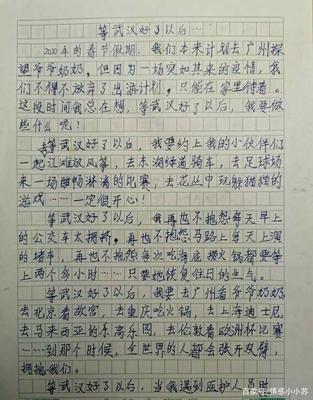 等武汉好了以后…
2020年的春节假期，我们本来计划去广州探
望爷爷奶奶，但因为一场突如其来的疫情，我
们不得不放弃了出游计划，只能在家里待着。
这段时间我总在想，等武汉好了以后，我要做
些什么呢！
等武汉好了以后，我要约上我的小伙伴们
一起江滩放风筝，去东湖绿道骑车，去足球场
来一场酣畅淋漓的比赛，去花丛中玩躲猫猫的
游戏……一定很开心！
等武汉好了以后，我再也不抱怨每天早上
的公交车太拥挤，再也不抱怨马路上每天上演
的堵车，再也不抱怨每次吃海底捞火锅都要等
上两个多小时……只要她恢复往日的生气。
等武汉好了以后，我要去广州看爷爷奶奶
去北京看故宫，去重庆吃火锅，去上海迪士尼，
去马来西亚的乐高乐园，去伦敦看欧洲杯比赛
……到那个时候，全世界的人都会张开双臂，
拥抱我们。
等武汉好了以后，当我遇到医护人员时
百家号/情感小小苏